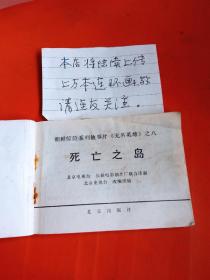 本店将陆续上传
上万本连环画，敬
请连友关注。
朝鲜惊险系列故事片《无名英雄》之八
死亡之岛
北京电视台 长春电影制片厂联合译制
北京出版社